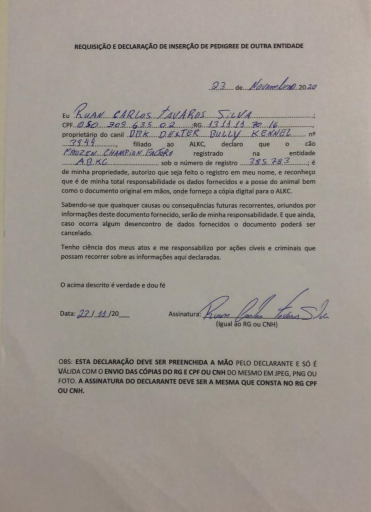 REQUISIÇÃO E DECLARAÇÃO DE INSERÇÃO DE PEDIGREE DE OUTRA ENTIDADE
23 de Novembro 2020
Eu RUAN CARLOS TAVARES SILVA ;
CPF 050 709 635 02 RG 13 11 11 70 16 ,
proprietário do canil DBK DEXTER BULLY KENNEL nº
3949, filiado ao ALKC, declaro que o cão
FROZEN CHAMPION FACTORY registrado na entidade
ABKC sob o número de registro 385.783 ; é
de minha propriedade, autorizo que seja feito o registro em meu nome, e reconheço
que é de minha total responsabilidade os dados fornecidos e a posse do animal bem
como o documento original em mãos, onde forneço a cópia digital para o ALKC.
Sabendo-se que quaisquer causas ou consequências futuras recorrentes, oriundos por
informações deste documento fornecido, serão de minha responsabilidade. E que ainda,
caso ocorra algum desencontro de dados fornecidos o documento poderá ser
cancelado.
Tenho ciência dos meus atos e me responsabilizo por ações cíveis e criminais que
possam recorrer as informações aqui declaradas.
O acima descrito é verdade e dou fé
Data: 22/11/20__ Assinatura: Ruan Carlos Tavares Silva
(Igual ao RG ou CNH)
OBS: ESTA DECLARAÇÃO DEVE SER PREENCHIDA A MÃO PELO DECLARANTE E SÓ É
VÁLIDA COM O ENVIO DAS CÓPIAS DO RG E CPF OU CNH DO MESMO EM JPEG, PNG OU
FOTO. A ASSINATURA DO DECLARANTE DEVE SER A MESMA QUE CONSTA NO RG CPF
OU CNH.